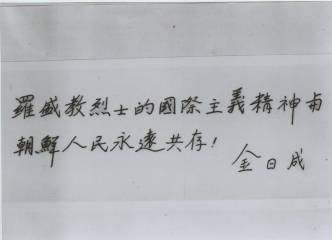 羅盛教烈士的國際主義精神与
朝鮮人民永遠共存!
金日成